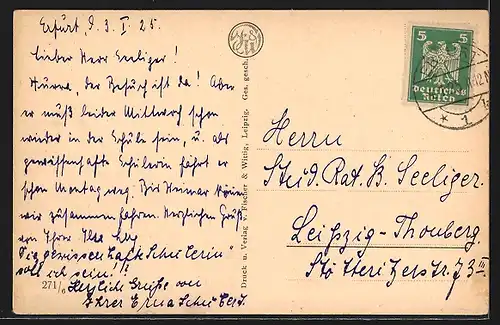 Erfurt, d. 3. I. 25.
Lieber Herr Seeliger!
Hurra, der Besuch ist da! Aber
er muß leider Mittwoch schon
wieder in der Schule sein, u. als
gewissenhafte Schülerin fährt er
schon Montag weg. Bis Weimar können
wir zusammen fahren. Herzlichen Gruß
von Ihrer Ilse
"Die gewissenhafte Schülerin"
soll ich sein!!!
Herzliche Grüße von
Ihrer Erna Schubert.
271/6
Druck u. Verlag v. Fischer & Wittig, Leipzig. Ges. gesch.
5 5
Deutsches
Reich
* 1
Herrn
Stud. Rat. B. Seeliger.
Leipzig-Thonberg.
Stötteritzerstr. 73 III